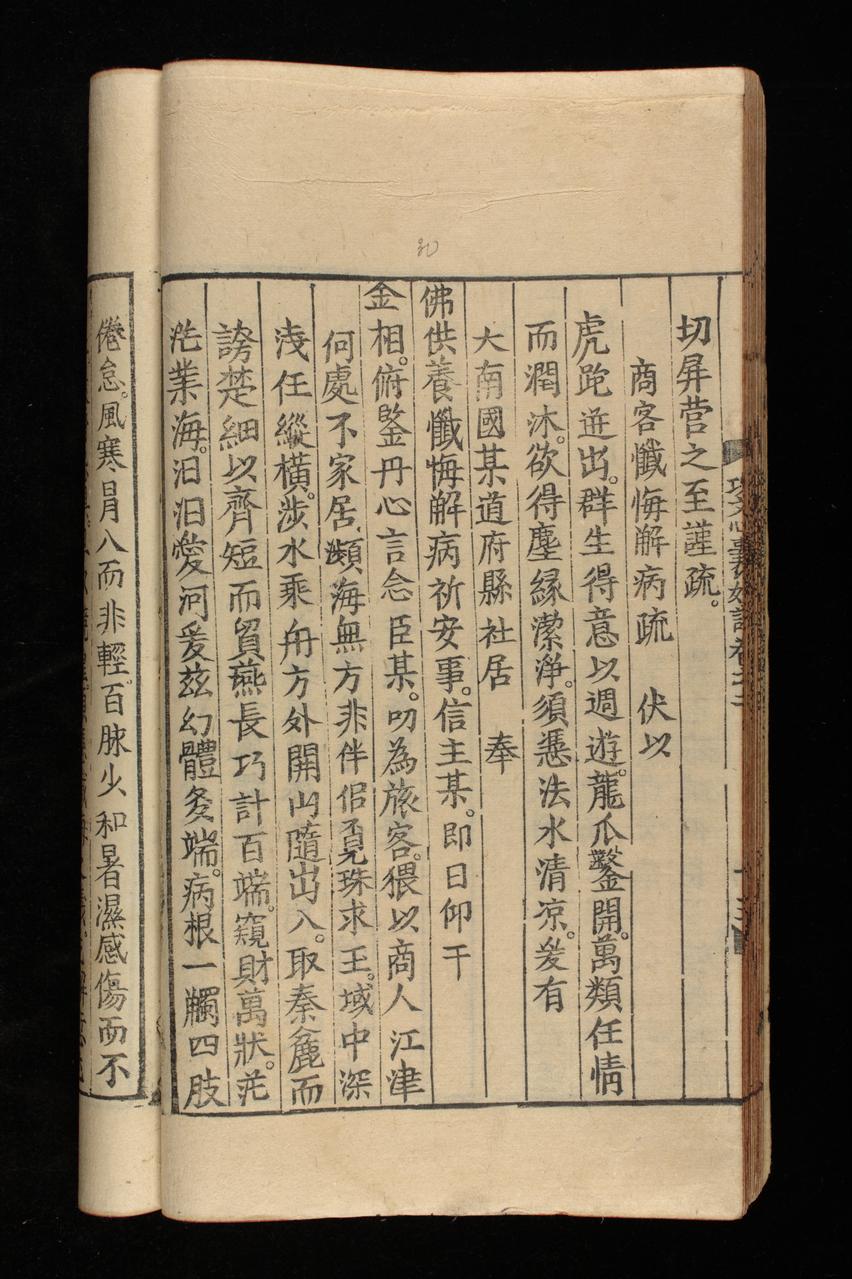 切屏营之至謹疏。
商客懺悔解病疏 伏以
虎跑迸出。群生得意以週遊。龍爪鑿開。萬類任情
而潤沐。欲得塵緣潔淨。須憑法水清凉。爰有
大南國某道府縣社居 奉
佛供養懺悔解病祈安事。信主某。即日仰干
金相。俯鑒丹心言念臣某。叨為旅客。猥以商人江津
何處不家居。瀕海無方非伴侣覓珠求玉。域中深
淺任縱橫。涉水乘舟方外開山隨出入。取秦麁而
謗楚細以齊短而貿燕長巧計百端。窺財萬狀。茫
茫業海。汩汩愛河爰玆幻體多端。病根一觸四肢
倦怠。風寒冐八而非輕。百脉少和暑濕感傷而不